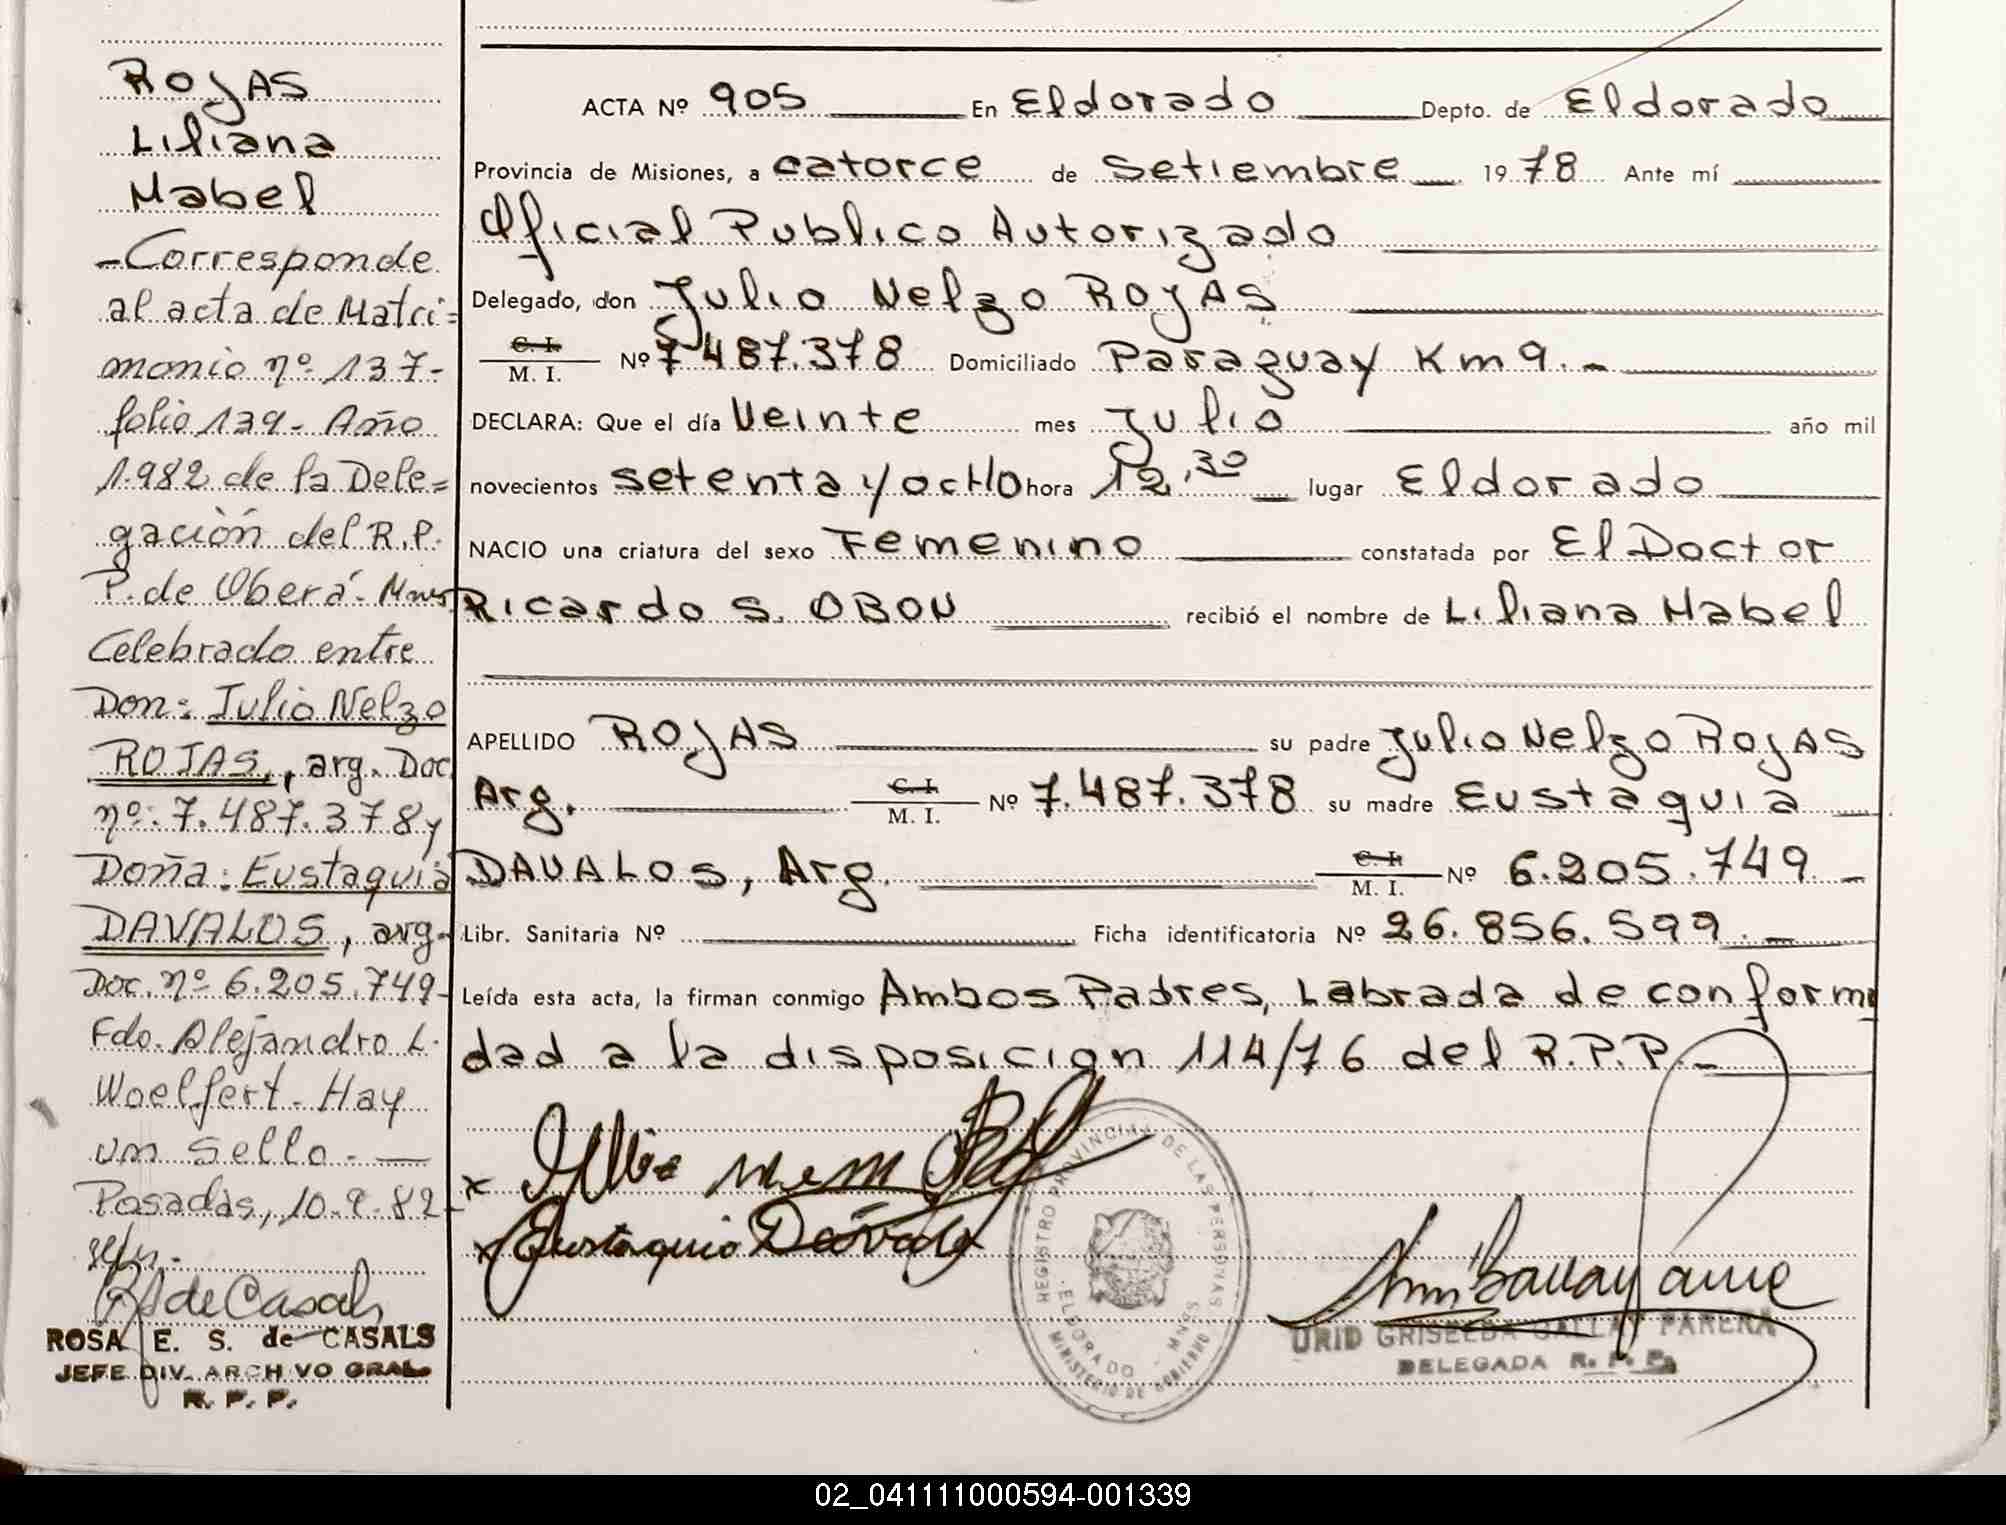 ROJAS
Liliana
Mabel
-Corresponde
al acta de Matri=
monio nº 137-
folio 139- Año
1.982 de la Dele=
gación del R.P.
P. de Oberá- Mnes
Celebrado entre
Don: Julio Nelzo
ROJAS, arg. Doc
nº: 7.487.378 y
Doña: Eustaquia
DAVALOS, arg-
Doc. nº 6.205.749-
Fdo. Alejandro L.
Woelfert. Hay
un sello. —
Posadas, 10.9.82-
R S de Casals
ROSA E. S. de CASALS
JEFE DIV. ARCHIVO GRAL
R. P. P.
ACTA Nº 905 En Eldorado Depto. de Eldorado
Provincia de Misiones, a catorce de setiembre 1978 Ante mí
Oficial Publico Autorizado
Delegado, don Julio Nelzo ROJAS
C. I.
M. I. Nº 7.487.378 Domiciliado Paraguay Km 9.-
DECLARA: Que el día Veinte mes Julio año mil
novecientos setenta y ocHo hora 12,30 lugar Eldorado
NACIO una criatura del sexo Femenino constatada por El Doctor
Ricardo S. OBON recibió el nombre de Liliana Mabel
APELLIDO ROJAS su padre Julio Nelzo ROJAS
Arg. C. I. M. I. Nº 7.487.378 su madre Eustaquia
DAVALOS, Arg. C. I. M. I. Nº 6.205.749 -
Libr. Sanitaria Nº Ficha identificatoria Nº 26.856.599.-
Leída esta acta, la firman conmigo Ambos Padres, Labrada de conformi
dad a la disposicion 114/76 del R.P.P.-
x
x Eustaquia Dávalos
REGISTRO PROVINCIAL DE LAS PERSONAS
ELDORADO - MNES
MINISTERIO DE GOBIERNO
URID GRISELDA GALLAY PARERA
DELEGADA R. P. P.
02_041111000594-001339